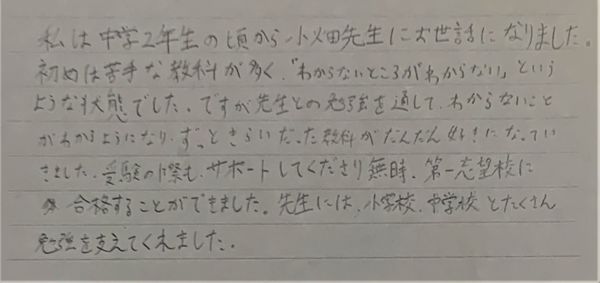 私は中学2年生の頃から小畑先生にお世話になりました。
初めは苦手な教科が多く、「わからないところがわからない」という
ような状態でした。ですが先生との勉強を通して、わからないこと
がわかるようになり、ずっときらいだった教科がだんだん好きになってい
きました。受験の際も、サポートしてくださり無時、第一志望校に
合格することができました。先生には、小学校、中学校とたくさん
勉強を支えてくれました。